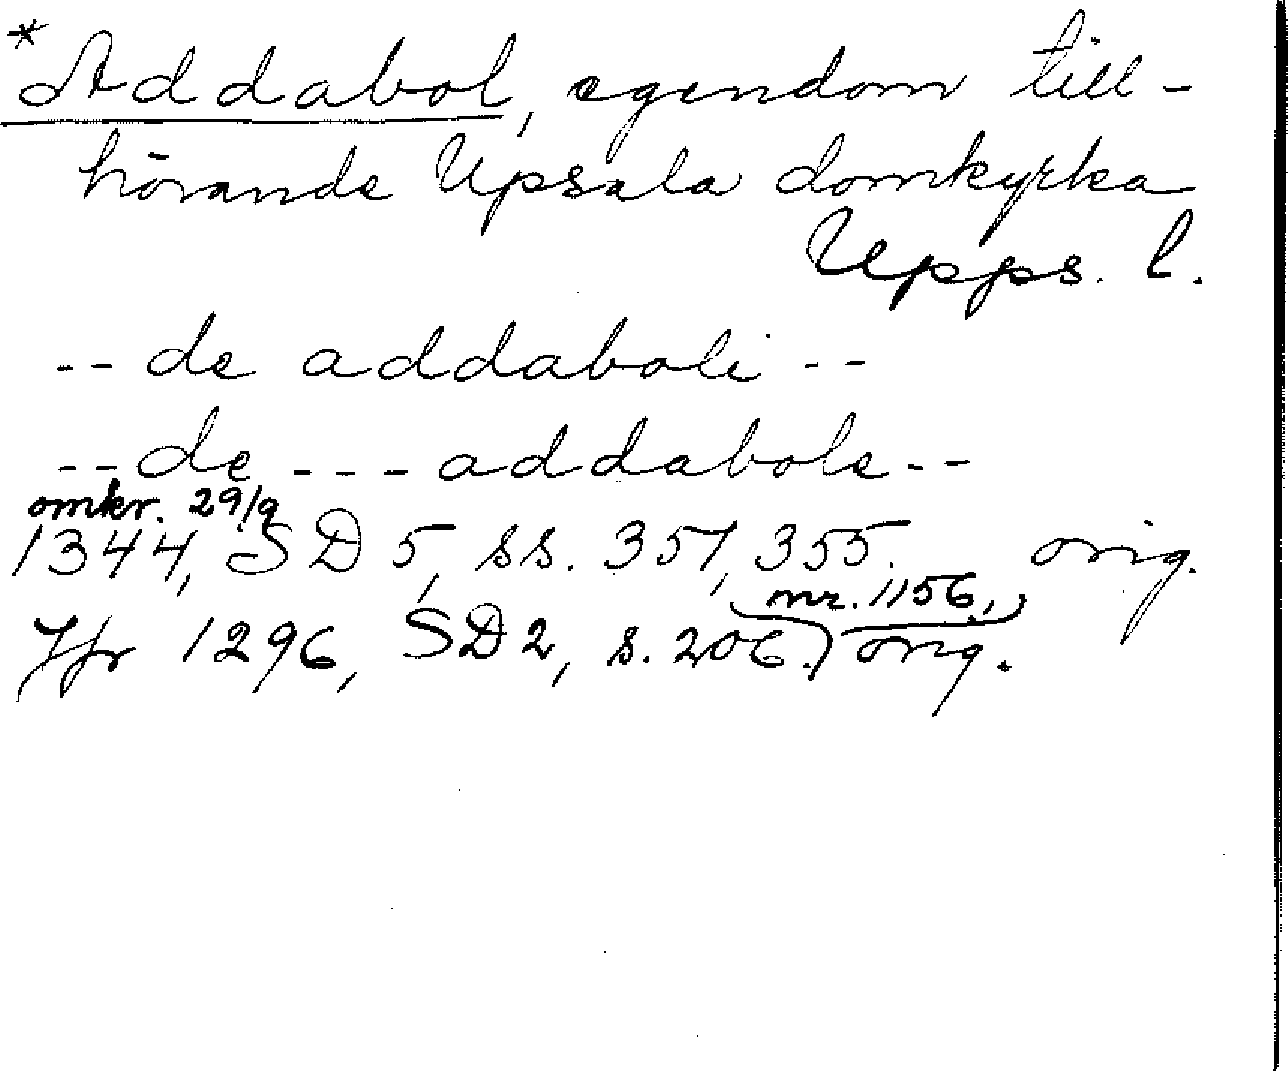 *Addabol, egendom till-
hörande Upsala domkyrka
Upps. l.
-- de addaboli --
-- de --- addabole --
omkr. 29/9
1344, SD 5, ss. 351, 355. orig.
nr. 1156,
Jfr 1296, SD 2, s. 206.) orig.